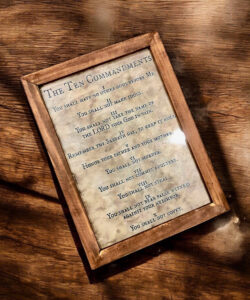 The Ten Commandments
I
You shall have no other gods before Me.
II
You shall not make idols.
III
You shall not take the name of
the LORD your God in vain.
IV
Remember the Sabbath day, to keep it holy.
V
Honor your father and your mother.
VI
You shall not murder.
VII
You shall not commit adultery.
VIII
You shall not steal.
IX
You shall not bear false witness
against your neighbor.
X
You shall not covet.